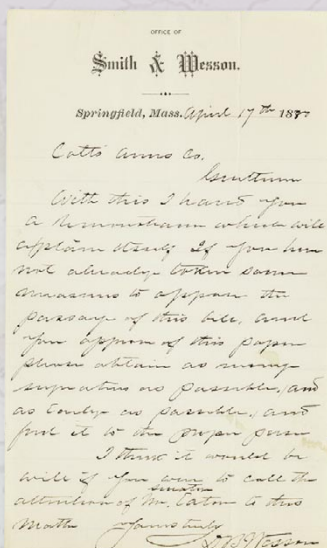 OFFICE OF
Smith & Wesson.
Springfield, Mass. April 17th 18
Colts Arms Co.
Gentlemen
With this I hand you
a remonstrance which will
explain itself If you have
not already taken some
measures to oppose the
passage of this bill, and
you approve of this paper
please obtain as many
signatures as possible, and
as early as possible, and
it to the proper person
I think it would be
well if you were to call the
senator
attention of Mr. Eaton to this
matter Yours truly
D B Wesson